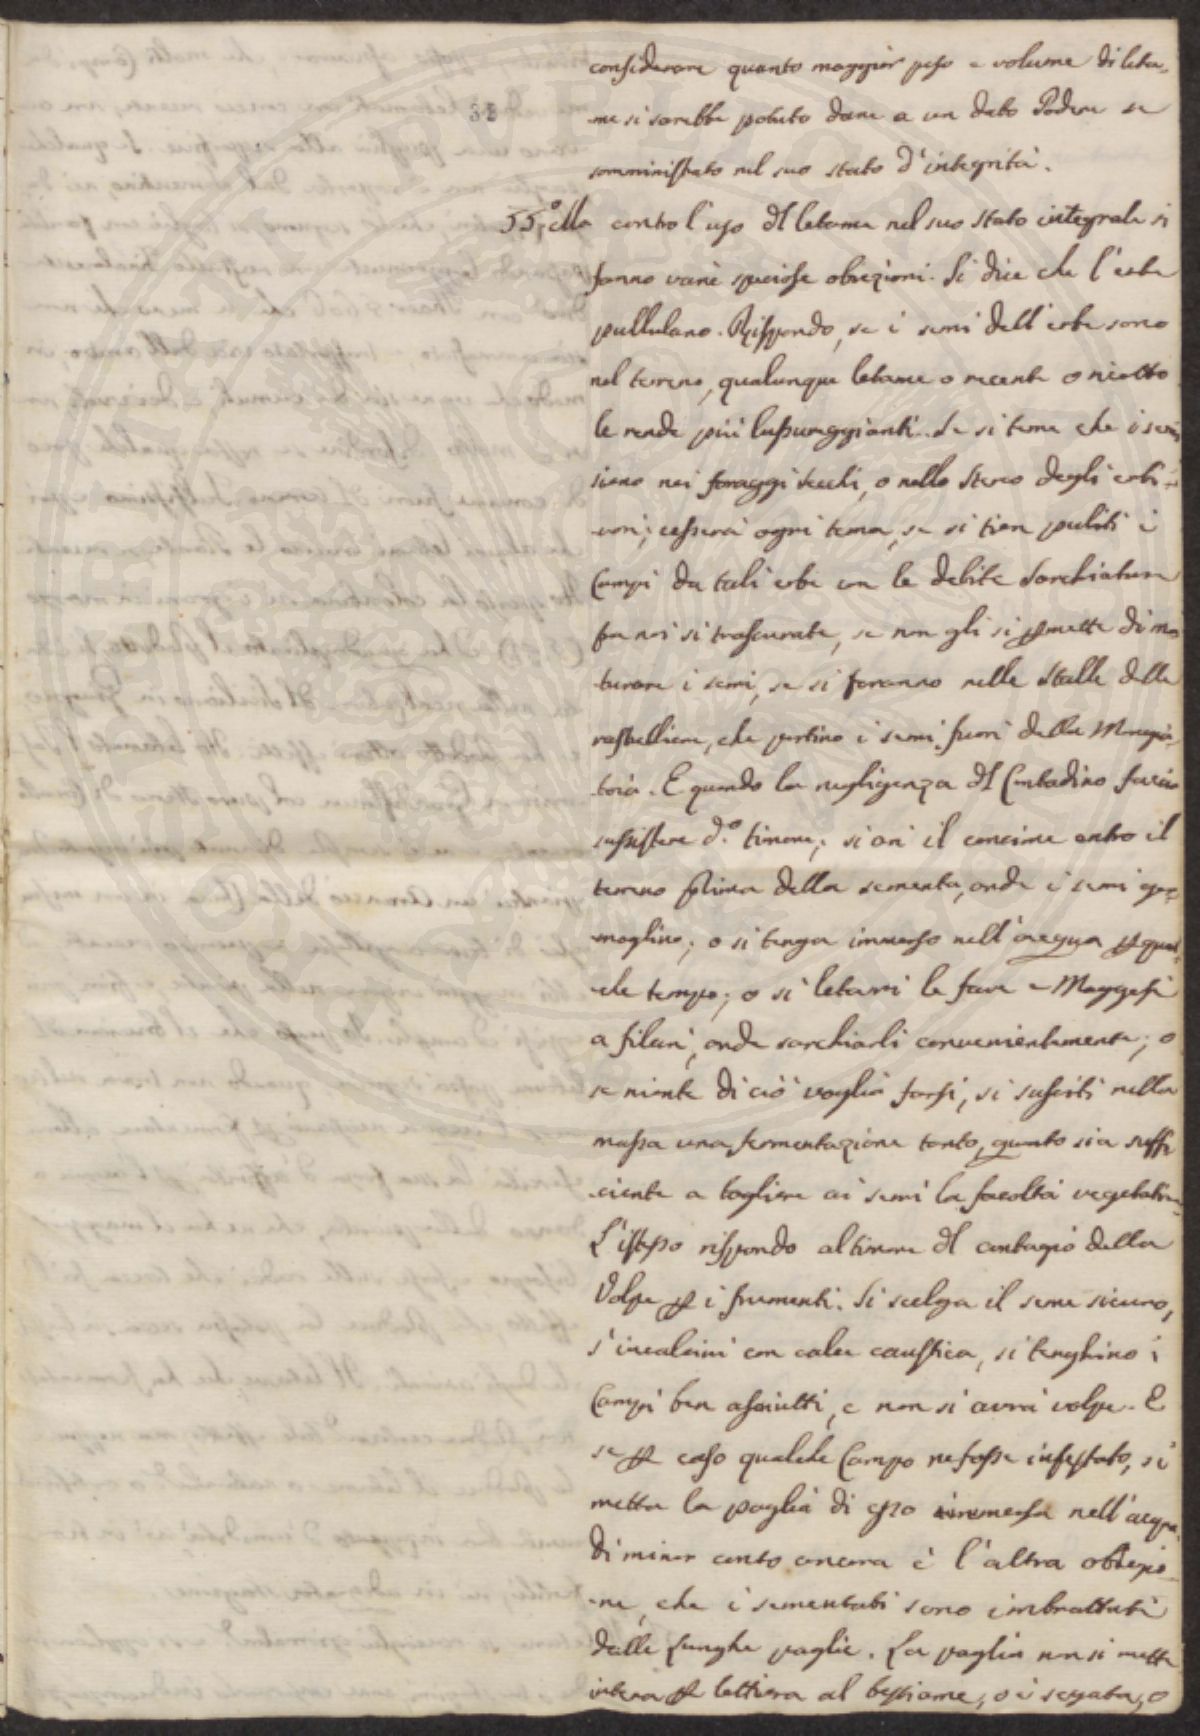 considerare quanto maggior peso e volume di leta-
me si sarebbe potuto dare a un dato Podere se
somministrato nel suo stato d'integrità.
55.° Ma contro l'uso del letame nel suo stato integrale si
fanno varie speciose obiezioni. Si dice che l'erbe
pullulano. Rispondo, se i semi dell'erbe sono
nel terreno, qualunque letame o recente o ricotto
le rende più lussureggianti. Se si teme che i semi
sieno nei foraggi secchi, o nello sterco degli erbi-
vori; cesserà ogni tema, se si tien puliti i
Campi da tali erbe con le debite sarchiature
fra noi si trascurate, se non gli si permette di ma
turare i semi, se si faranno nelle stalle delle
rastelliere, che portino i semi fuori della Mangia-
toia. E quando la negligenza del Contadino faccia
sussistere d.° timore; si ari il concime entro il
terreno prima della sementa, onde i semi ger-
moglino; o si tenga immerso nell'acqua per qual-
che tempo; o si letami le fave e Maggesi
a filari, onde sarchiarli convenientemente; o
se niente di ciò voglia farsi, si susciti nella
massa una fermentazione tanto, quanto sia suffi
ciente a togliere ai semi la facoltà vegetativa.
L'istesso rispondo al timore del contagio della
Volpe per i frumenti. Si scelga il seme sicuro,
s'incalcini con calce caustica, si tenghino i
Campi ben asciutti, e non si avrà volpe. E
se per caso qualche Campo ne fosse infestato, si
metta la paglia di esso immersa nell'acqua.
Di minor conto ancora è l'altra obiezio-
ne, che i sementati sono imbrattati
dalle lunghe paglie. La paglia non si mette
intera per lettiera al bestiame, o è segata, o